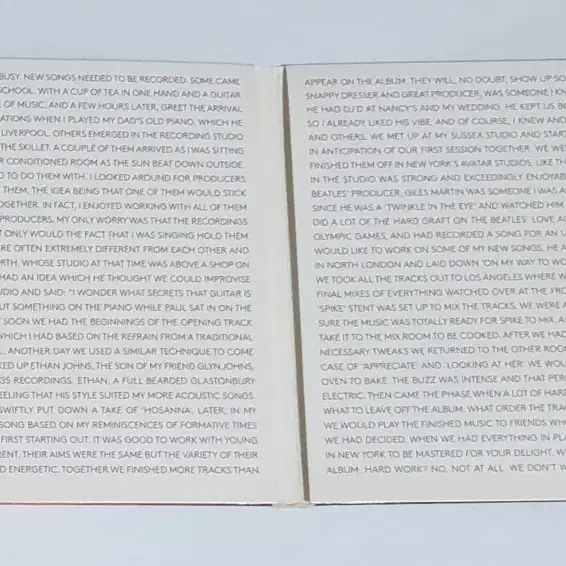 BUSY. NEW SONGS NEEDED TO BE RECORDED. SOME CAME
SCHOOL. WITH A CUP OF TEA IN ONE HAND AND A GUITAR
OF MUSIC, AND A FEW HOURS LATER, GREET THE ARRIVAL
ATIONS WHEN I PLAYED MY DAD'S OLD PIANO, WHICH HE
LIVERPOOL. OTHERS EMERGED IN THE RECORDING STUDIO
THE SKILLET. A COUPLE OF THEM ARRIVED AS I WAS SITTING
R CONDITIONED ROOM AS THE SUN BEAT DOWN OUTSIDE.
TO DO THEM WITH. I LOOKED AROUND FOR PRODUCERS
THEM, THE IDEA BEING THAT ONE OF THEM WOULD STICK
OGETHER. IN FACT, I ENJOYED WORKING WITH ALL OF THEM
PRODUCERS. MY ONLY WORRY WAS THAT THE RECORDINGS
T ONLY WOULD THE FACT THAT I WAS SINGING HOLD THEM
RE OFTEN EXTREMELY DIFFERENT FROM EACH OTHER AND
RTH, WHOSE STUDIO AT THAT TIME WAS ABOVE A SHOP ON
HAD AN IDEA WHICH HE THOUGHT WE COULD IMPROVISE
UDIO AND SAID: "I WONDER WHAT SECRETS THAT GUITAR IS
UT SOMETHING ON THE PIANO WHILE PAUL SAT IN ON THE
SOON WE HAD THE BEGINNINGS OF THE OPENING TRACK
WHICH I HAD BASED ON THE REFRAIN FROM A TRADITIONAL
L. ANOTHER DAY WE USED A SIMILAR TECHNIQUE TO COME
KED UP ETHAN JOHNS, THE SON OF MY FRIEND GLYN JOHNS,
GS RECORDINGS. ETHAN, A FULL BEARDED GLASTONBURY
EELING THAT HIS STYLE SUITED MY MORE ACOUSTIC SONGS.
SWIFTLY PUT DOWN A TAKE OF 'HOSANNA'. LATER, IN MY
SONG BASED ON MY REMINISCENCES OF FORMATIVE TIMES
FIRST STARTING OUT. IT WAS GOOD TO WORK WITH YOUNG
ENT. THEIR AIMS WERE THE SAME BUT THE VARIETY OF THEIR
D ENERGETIC. TOGETHER WE FINISHED MORE TRACKS THAN
APPEAR ON THE ALBUM. THEY WILL, NO DOUBT, SHOW UP SO
SNAPPY DRESSER AND GREAT PRODUCER, WAS SOMEONE I KN
HE HAD DJ'D AT NANCY'S AND MY WEDDING. HE KEPT US BO
SO I ALREADY LIKED HIS VIBE, AND OF COURSE, I KNEW AND
AND OTHERS. WE MET UP AT MY SUSSEX STUDIO AND START
IN ANTICIPATION OF OUR FIRST SESSION TOGETHER. WE WE
FINISHED THEM OFF IN NEW YORK'S AVATAR STUDIOS. LIKE TH
IN THE STUDIO WAS STRONG AND EXCEEDINGLY ENJOYAB
BEATLES' PRODUCER, GILES MARTIN WAS SOMEONE I WAS A
SINCE HE WAS A 'TWINKLE IN THE EYE' AND WATCHED HIM
DID A LOT OF THE HARD GRAFT ON THE BEATLES' LOVE AL
OLYMPIC GAMES, AND HAD RECORDED A SONG FOR AN U
WOULD LIKE TO WORK ON SOME OF MY NEW SONGS. HE A
IN NORTH LONDON AND LAID DOWN 'ON MY WAY TO WO
WE TOOK ALL THE TRACKS OUT TO LOS ANGELES WHERE W
FINAL MIXES OF EVERYTHING WATCHED OVER AT THE FRO
'SPIKE' STENT WAS SET UP TO MIX THE TRACKS. WE WERE A
SURE THE MUSIC WAS TOTALLY READY FOR SPIKE TO MIX. A
TAKE IT TO THE MIX ROOM TO BE COOKED. AFTER WE HAD
NECESSARY TWEAKS WE RETURNED TO THE OTHER ROO
CASE OF 'APPRECIATE' AND 'LOOKING AT HER' WE WOUL
OVEN TO BAKE. THE BUZZ WAS INTENSE AND THAT PER
ELECTRIC. THEN CAME THE PHASE WHEN A LOT OF HARD
WHAT TO LEAVE OFF THE ALBUM. WHAT ORDER THE TRA
WE WOULD PLAY THE FINISHED MUSIC TO FRIENDS WH
WE HAD DECIDED. WHEN WE HAD EVERYTHING IN PL
IN NEW YORK TO BE MASTERED FOR YOUR DELIGHT. W
ALBUM. HARD WORK? NO, NOT AT ALL. WE DON'T W